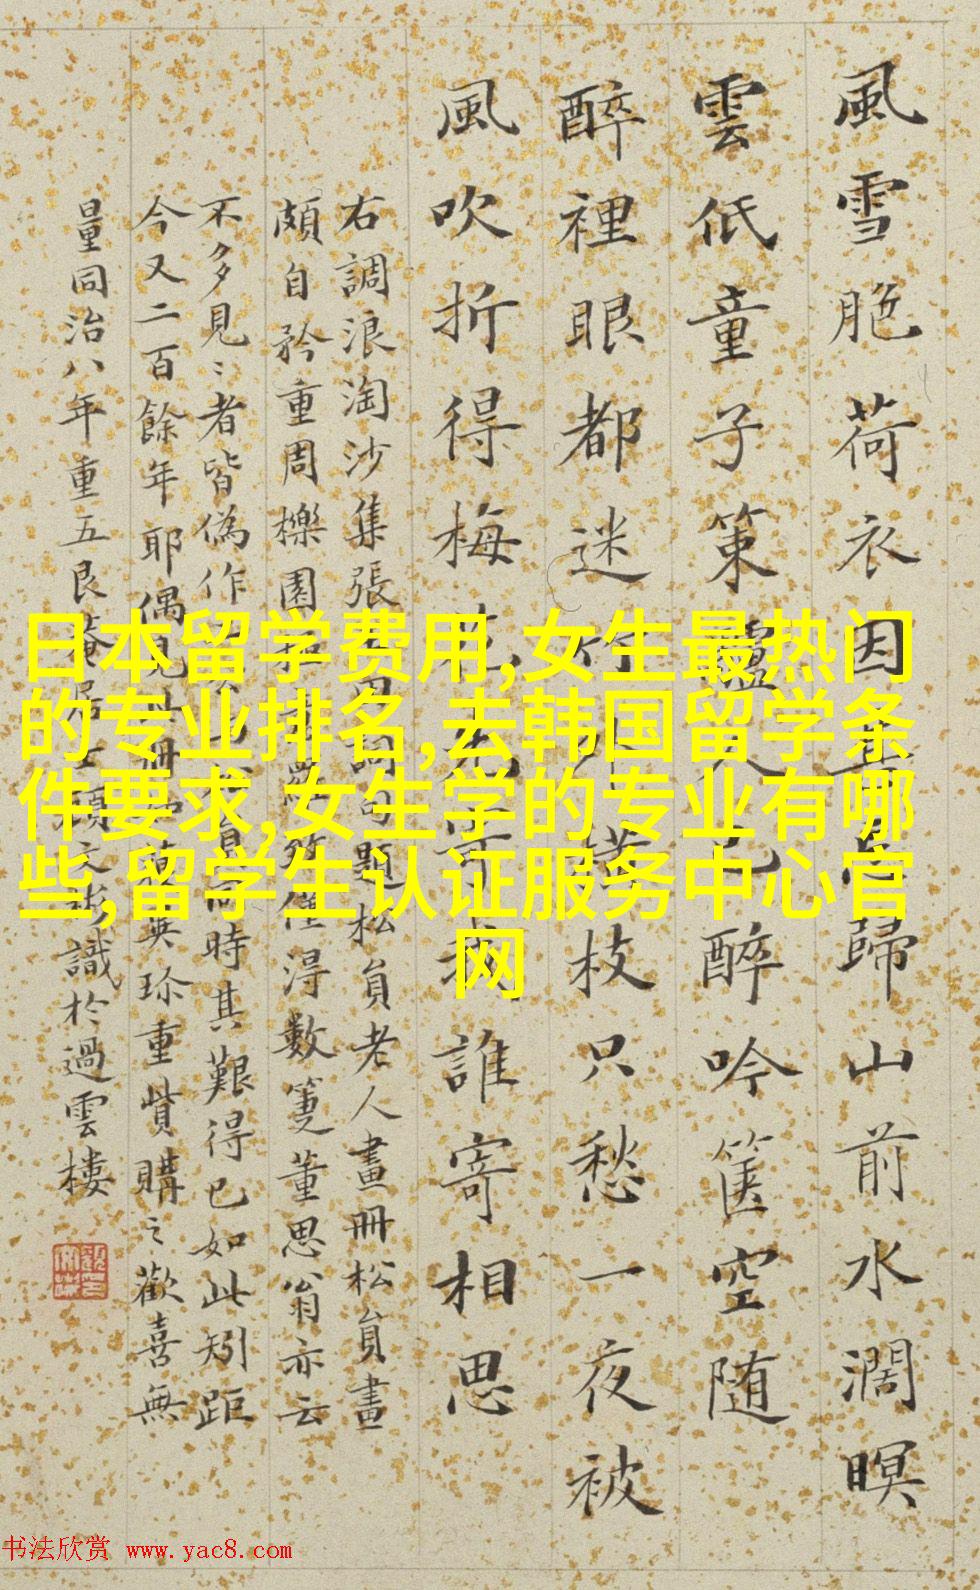 風雪胣荷衣因
歸山前水濶暝
雲低童子策
醉吟篋空随
醉裡眼都迷
枝只愁一夜被
風吹折得梅
誰寄相思
右調浪淘沙集張
題松員老人畫冊松員畫
頗自矜重周櫟園
僅淂數箑董思翁亦云
不多見〻者皆偽作
時其艱得已如此矧距
今又二百餘年耶偶見
珎重貲購之歡喜無
量同治八年重五艮菴
識於過雲樓
日本留学费用,女生最热门
的专业排名,去韩国留学条
件要求,女生学的专业有哪
些,留学生认证服务中心官
网
书法欣赏 www.yac8.com